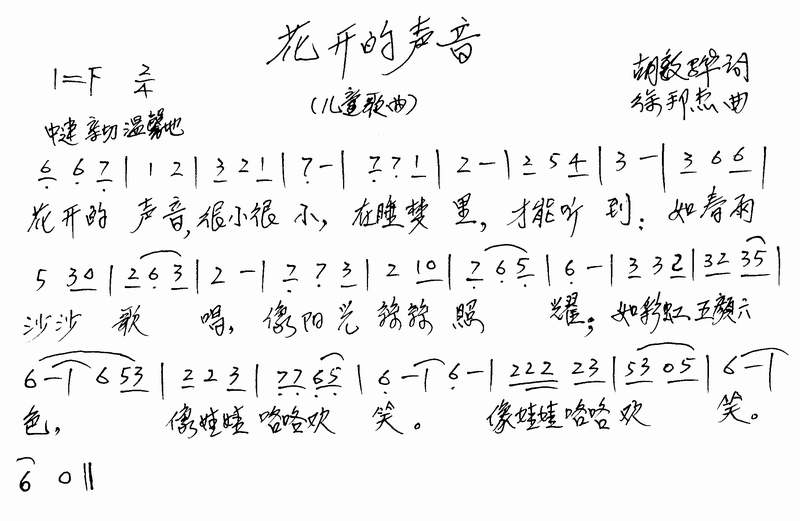 花开的声音
1=F 2/4
(儿童歌曲)
胡敦骅词
徐邦杰曲
中速 亲切温馨地
6 6 7 | 1 2 | 3 2 1 | 7 - | 7 7 1 | 2 - | 2 5 4 | 3 - | 3 6 6 |
花开的 声音,很小很 小, 在睡梦 里, 才能听 到; 如春雨
5 30 | 2 6 3 | 2 - | 7 7 3 | 2 10 | 7 6 5 | 6 - | 3 3 2 | 32 35 |
沙沙 歌 唱, 像阳光 丝丝 照 耀; 如彩虹 五颜六
6 - | 6 53 | 2 2 3 | 77 65 | 6 - | 6 - | 222 23 | 53 05 | 6 - |
色, 像娃娃 咯咯欢 笑。 像娃娃咯咯欢 笑。
6 0 ‖